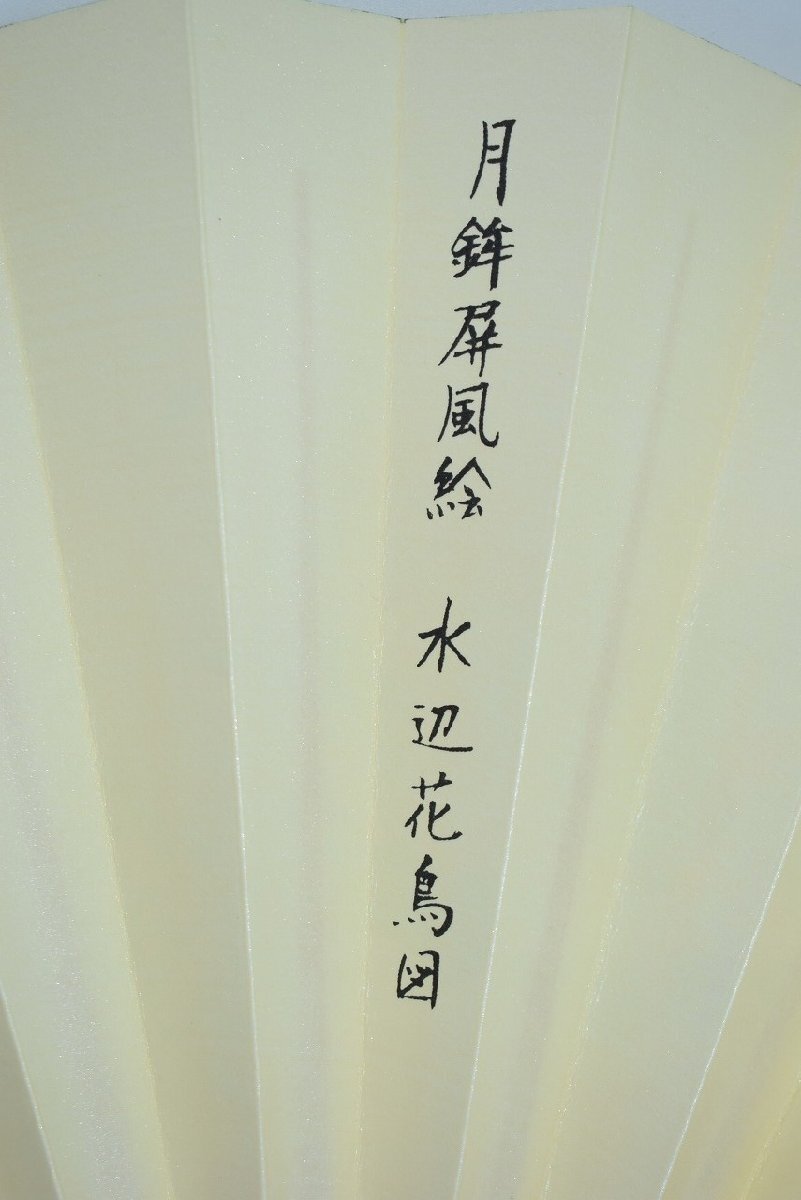 月鉾屏風絵　水辺花鳥図